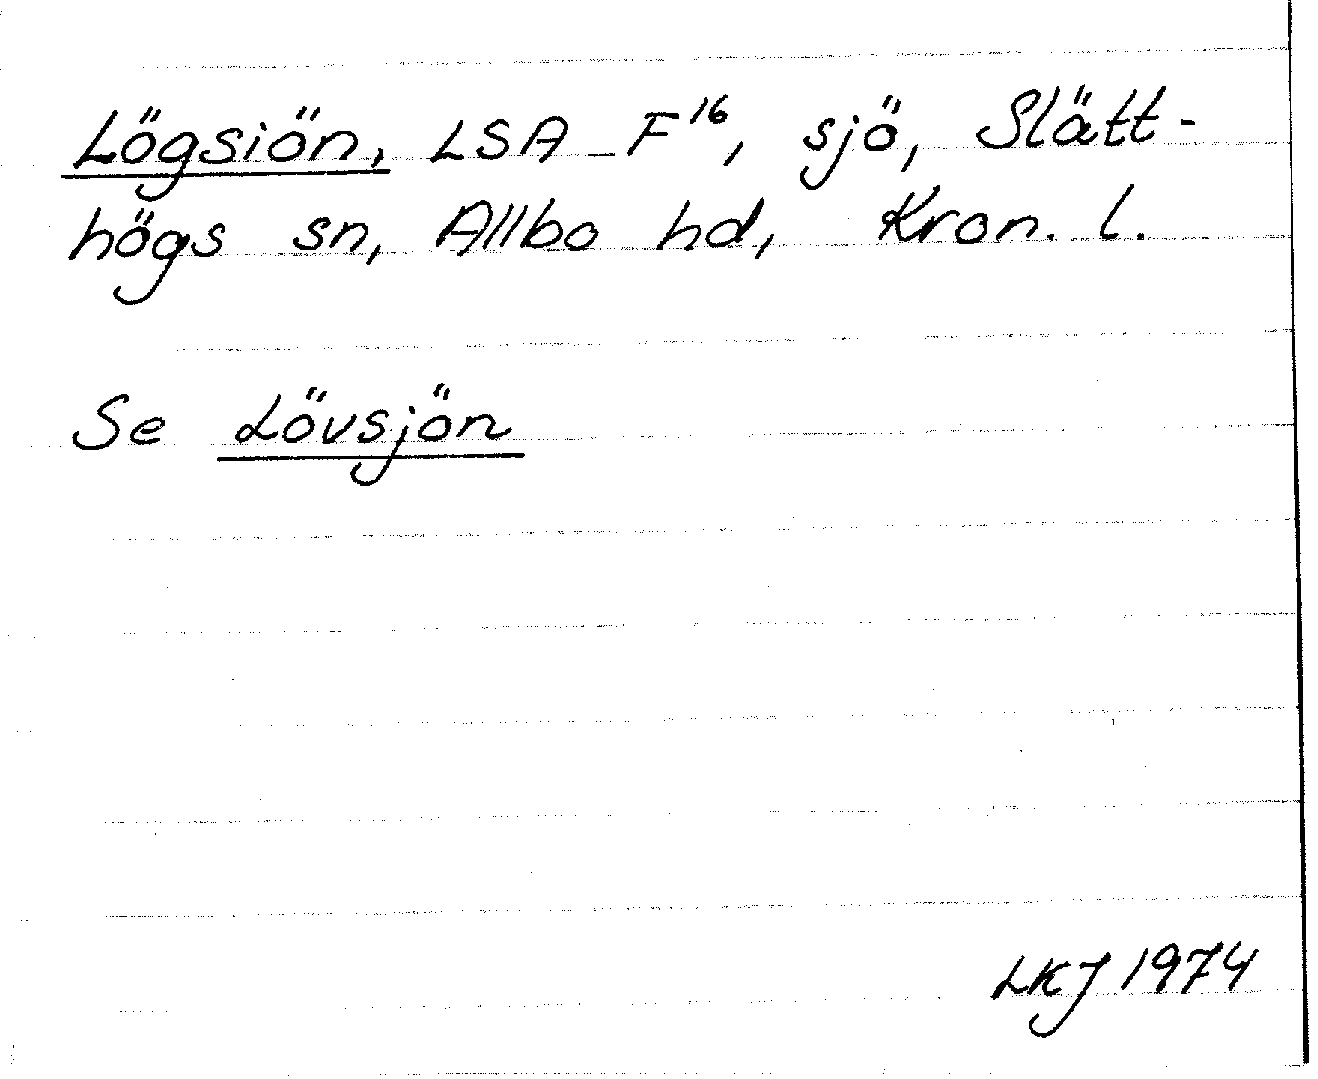 Lögsiön, LSA F16, sjö, Slätt-
högs sn, Allbo hd, Kron. l.
Se Lövsjön
LKJ 1974